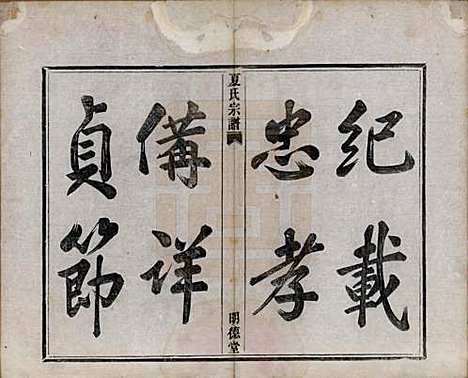 紀載
忠孝
夏氏宗譜
明德堂
備詳
貞節